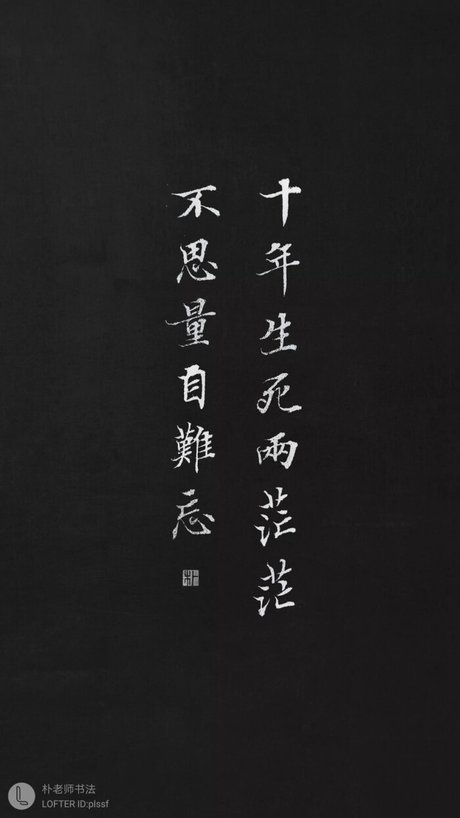 十年生死兩茫茫
不思量自難忘
朴老师书法
LOFTER ID:plssf